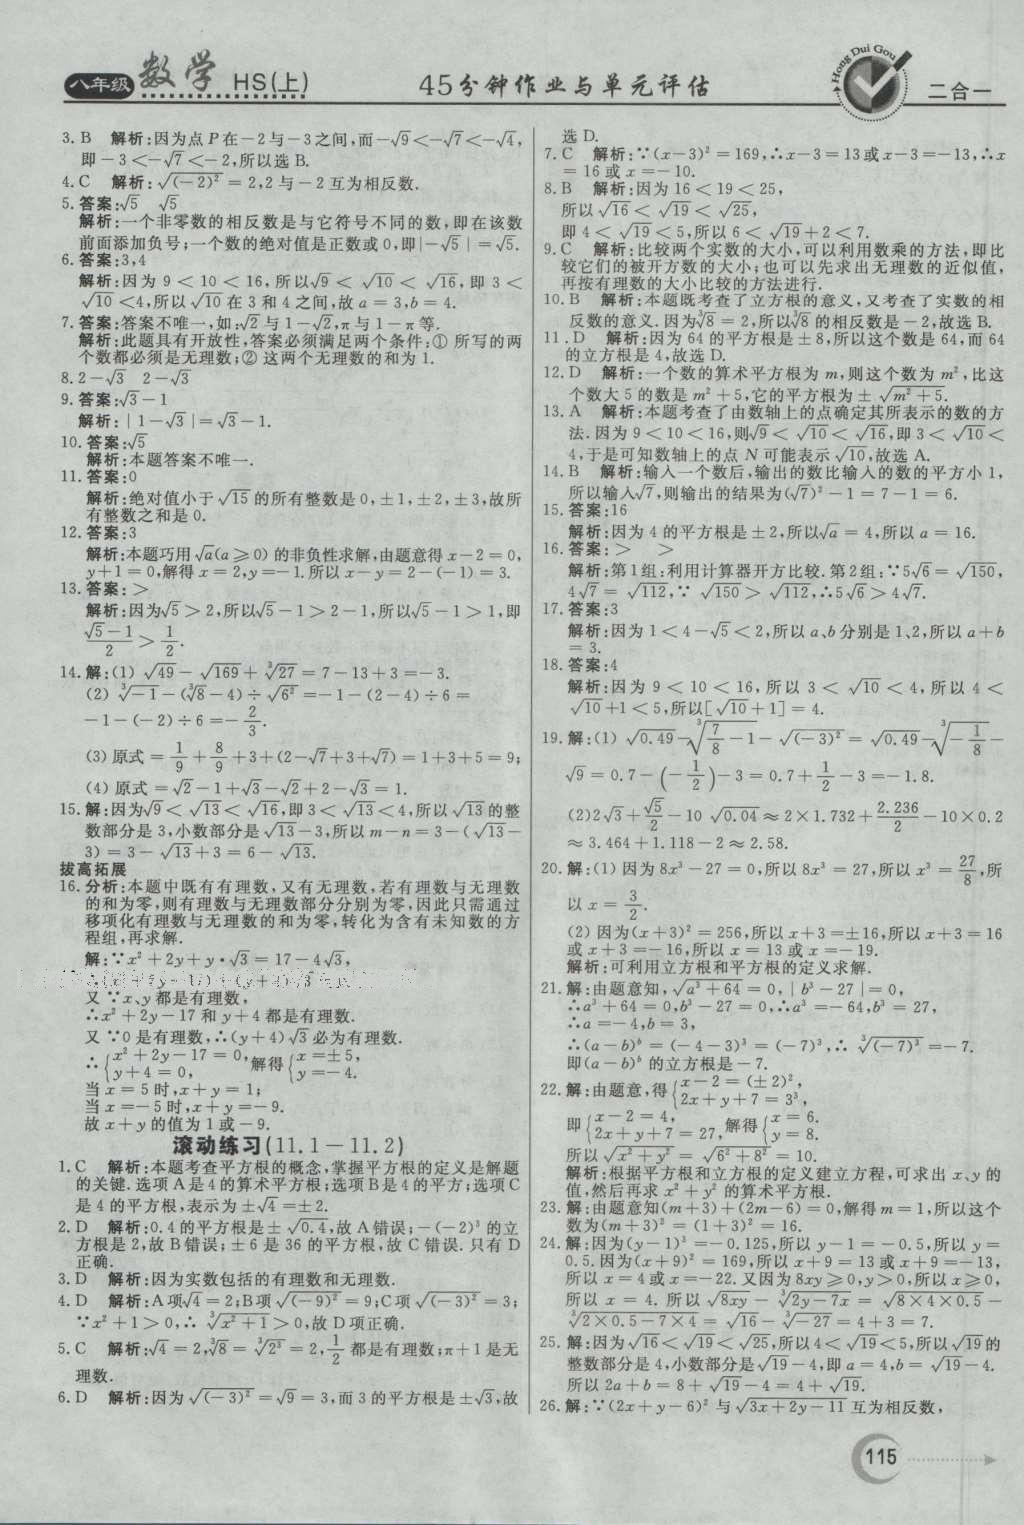 八年级 数学 HS(上) 45分钟作业与单元评估 Hong Dui Gou 二合一
3. B 解析:因为点 P 在-2与-3之间,而-√9<-√7<-√4,
即-3<-√7<-2,所以选 B.
4. C 解析:√(-2)²=2,2与-2互为相反数.
5. 答案:√5 √5
解析:一个非零数的相反数是与它符号不同的数,即在该数
前面添加负号;一个数的绝对值是正数或0,即|-√5|=√5.
6. 答案:3,4
解析:因为9<10<16,所以√9<√10<√16,即3<
√10<4,所以√10在3和4之间,故a=3,b=4.
7. 答案:答案不唯一,如:√2与1-√2,π与1-π等.
解析:此题具有开放性,答案必须满足两个条件:①所写的两
个数都必须是无理数;②这两个无理数的和为1.
8. 2-√3 2-√3
9. 答案:√3-1
解析:|1-√3|=√3-1.
10. 答案:√5
解析:本题答案不唯一.
11. 答案:0
解析:绝对值小于√15的所有整数是0,±1,±2,±3,故所
有整数之和是0.
12. 答案:3
解析:本题巧用√a(a≥0)的非负性求解,由题意得x-2=0,
y+1=0,解得x=2,y=-1.所以x-y=2-(-1)=3.
13. 答案:>
解析:因为√5>2,所以√5-1>2-1,所以√5-1>1,即
(√5-1)/2>1/2.
14. 解:(1)√49-√169+∛27=7-13+3=-3.
(2)∛-1-(∛8-4)÷√6²=-1-(2-4)÷6=
-1-(-2)÷6=-2/3.
(3)原式=1/9+8/9+3+(2-√7+3+√7)=1+3+5=9;
(4)原式=√2-1+√3-√2+2-√3=1.
15. 解:因为√9<√13<√16,即3<√13<4,所以√13的整
数部分是3,小数部分是√13-3,所以m-n=3-(√13-
3)=3-√13+3=6-√13.
拔高拓展
16. 分析:本题中既有有理数,又有无理数,若有理数与无理数
的和为零,则有理数与无理数部分分别为零,因此只需通过
移项化有理数与无理数的和为零,转化为含有未知数的方
程组,再求解.
解:∵x²+2y+y·√3=17-4√3,
又∵x、y都是有理数,
∴x²+2y-17和y+4都是有理数.
又∵0是有理数,∴(y+4)√3必为有理数.
∴{x²+2y-17=0, y+4=0, 解得{x=±5, y=-4.
当x=5时,x+y=1;
当x=-5时,x+y=-9.
故x+y的值为1或-9.
滚动练习(11.1-11.2)
1. C 解析:本题考查平方根的概念,掌握平方根的定义是解题
的关键.选项A是4的算术平方根;选项B是4的平方;选项C
是4的平方根,表示为±√4=±2.
2. D 解析:0.4的平方根是±√0.4,故A错误;-(-2)³的立
方根是2,故B错误;±6是36的平方根,故C错误.只有D
正确.
3. D 解析:因为实数包括的有理数和无理数.
4. D 解析:A项√4=2;B项√(-9)²=9;C项√(-3)²=3;
∵x²+1>0,∴∛x²+1>0,故D项正确.
5. C 解析:√4=2,∛8=∛2³=2,1/2都是有理数;π+1是无
理数.
6. D 解析:因为√(-3)²=√9=3,而3的平方根是±√3,故
选D.
7. C 解析:∵(x-3)²=169,∴x-3=13或x-3=-13,∴x
=16或x=-10.
8. B 解析:因为16<19<25,
所以√16<√19<√25,
即4<√19<5,所以6<√19+2<7.
9. C 解析:比较两个实数的大小,可以利用数乘的方法,即比
较它们的被开方数的大小;也可以先求出无理数的近似值,
再按有理数的大小比较的方法进行.
10. B 解析:本题既考查了立方根的意义,又考查了实数的相
反数的意义.因为∛8=2,所以∛8的相反数是-2,故选B.
11. D 解析:因为64的平方根是±8,所以这个数是64,而64
的立方根是4,故选D.
12. D 解析:一个数的算术平方根为m,则这个数为m²,比这
个数大5的数是m²+5,它的平方根为±√m²+5.
13. A 解析:本题考查了由数轴上的点确定其所表示的数的方
法.因为9<10<16,则√9<√10<√16,即3<√10<
4,于是可知数轴上的点N可能表示√10,故选A.
14. B 解析:输入一个数后,输出的数比输入的数的平方小1,
所以输入√7,则输出的结果为(√7)²-1=7-1=6.
15. 答案:16
解析:因为4的平方根是±2,所以√a=4,所以a=16.
16. 答案:> >
解析:第1组:利用计算器开方比较.第2组:∵5√6=√150,
4√7=√112,∵√150>√112,∴5√6>4√7.
17. 答案:3
解析:因为1<4-√5<2,所以a、b分别是1、2,所以a+b
=3.
18. 答案:4
解析:因为9<10<16,所以3<√10<4,所以4<
√10+1<5,所以[√10+1]=4.
19. 解:(1)√0.49-∛(7/8-1)-√(-3)²=√0.49-∛(-1/8)-
√9=0.7-(-1/2)-3=0.7+1/2-3=-1.8.
(2)2√3+√5/2-10√0.04≈2×1.732+2.236/2-10×0.2
≈3.464+1.118-2≈2.58.
20. 解:(1)因为8x³-27=0,所以8x³=27,所以x³=27/8,所
以x=3/2.
(2)因为(x+3)²=256,所以x+3=±16,所以x+3=16
或x+3=-16,所以x=13或x=-19.
解析:可利用立方根和平方根的定义求解.
21. 解:由题意知,√a³+64=0,|b³-27|=0,
∴a³+64=0,b³-27=0,∴a³=-64,b³=27,
∴a=-4,b=3,
∴(a-b)ᵇ=(-4-3)³=(-7)³,∴∛(-7)³=-7.
即(a-b)ᵇ的立方根是-7.
22. 解:由题意,得{x-2=(±2)², 2x+y+7=3³,
即{x-2=4, 2x+y+7=27, 解得{x=6. y=8.
所以√x²+y²=√6²+8²=10.
解析:根据平方根和立方根的定义建立方程,可求出x、y的
值,然后再求x²+y²的算术平方根.
23. 解:由题意知(m+3)+(2m-6)=0,解得m=1,所以这个
数为(m+3)²=(1+3)²=16.
24. 解:因为(y-1)³=-0.125,所以y-1=-0.5,所以y=
0.5.因为(x+9)²=169,所以x+9=13或x+9=-13,
所以x=4或x=-22.又因为8xy≥0,y>0,所以x≥0,
所以x=4.所以√8xy-∛2y-7x=√8×4×0.5-
∛2×0.5-7×4=√16-∛-27=4+3=7.
25. 解:因为√16<√19<√25,所以4<√19<5,所以√19的
整数部分是4,小数部分是√19-4,即a=4,b=√19-4.
所以2a+b=8+√19-4=4+√19.
26. 解:∵(2x+y-6)²与√3x+2y-11互为相反数,
115